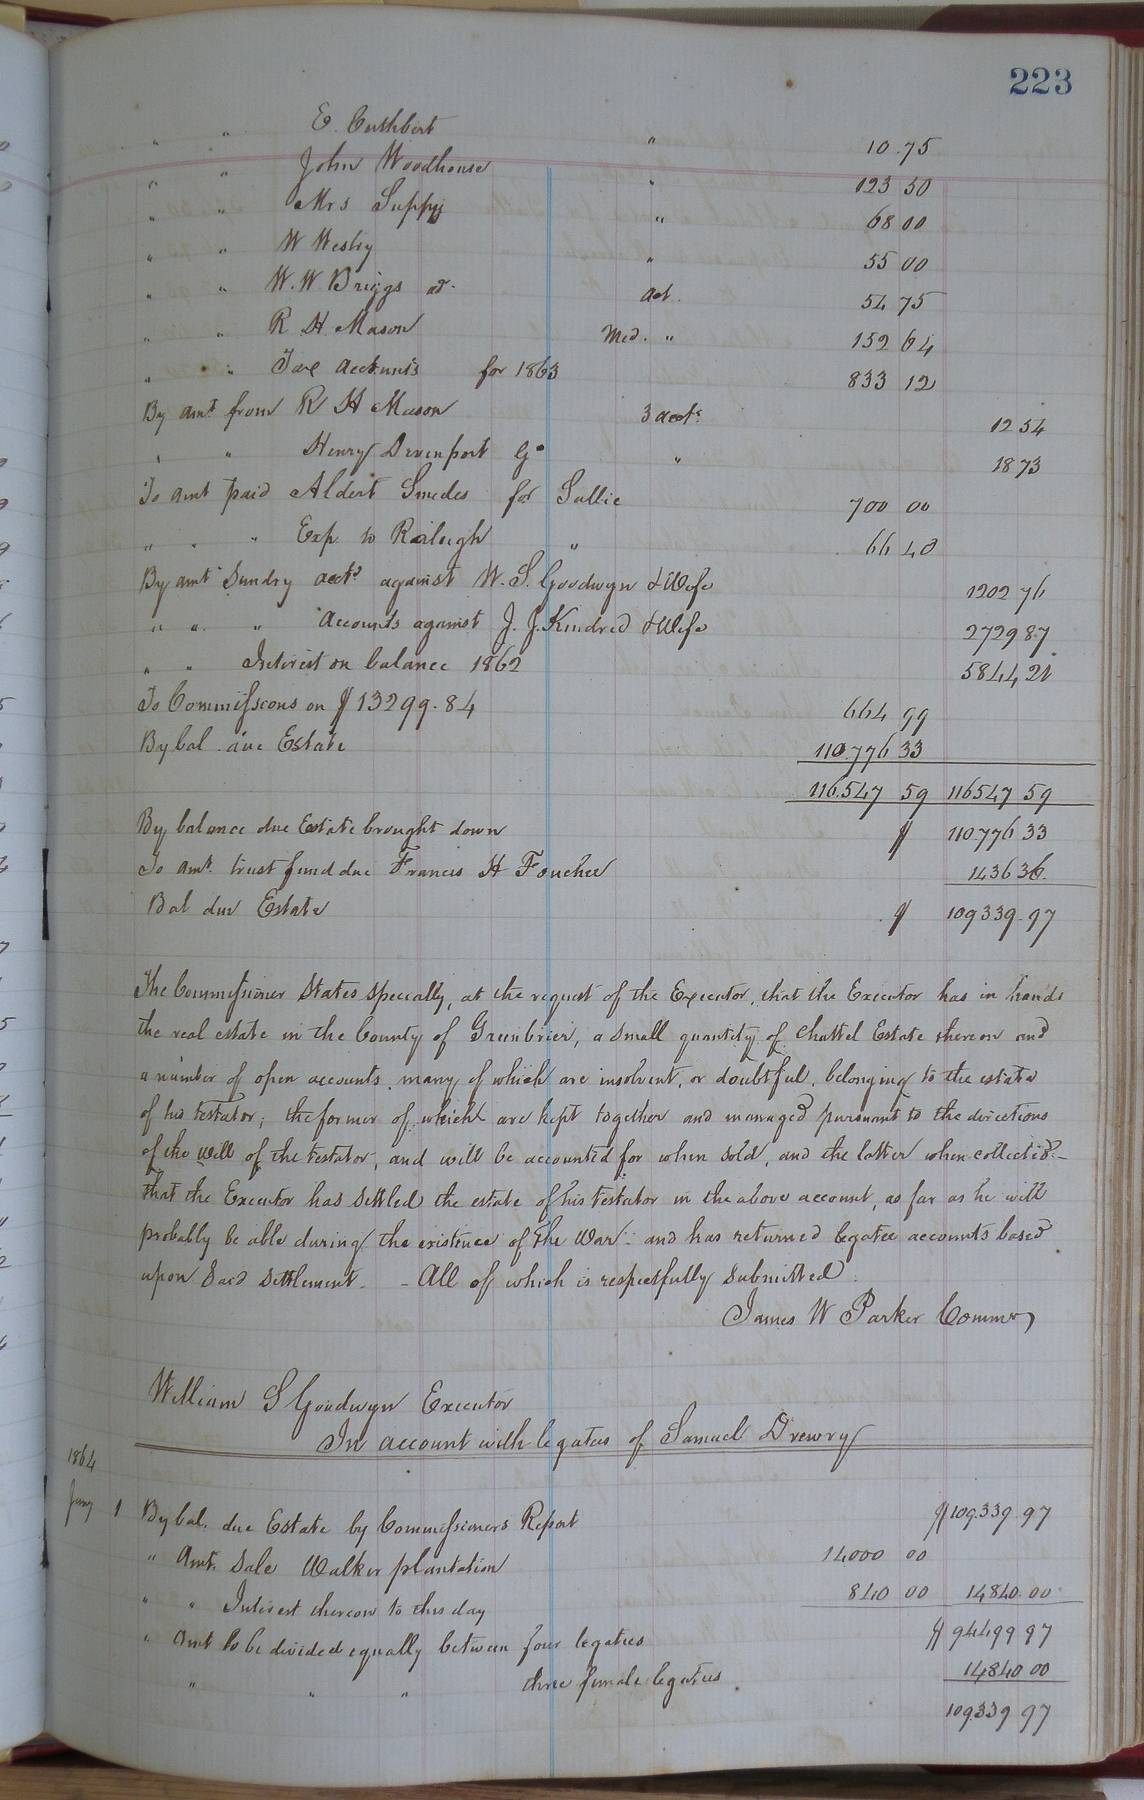 223
" " E. Cuthbert " 10.75
" " John Woodhouse " 123 50
" " Mrs Suppy " 68 00
" " W Wesley " 55 00
" " W. W Briggs ad. act. 54 75
" " R H. Mason Med. " 152 64
" " Tax accounts for 1863 833 12
By amt from R H Mason 3 acts. 12 54
" " Henry Devenport " 18 73
To amt paid Aldert Smedes for Sallie 700 00
" " " Exp. to Raleigh " 66 40
By amt Sundry acts against W. S. Goodwyn & Wife 1202 76
" " " accounts against J. J. Kindred & Wife 2729 87
" " Interest on balance 1862 5844 21
To Commissions on $13299.84 664 99
By bal due Estate 110.776 33
116.547 59 116547 59
By balance due Estate brought down $ 110.776 33
To amt. trust fund due Francis H Fouchee 1436 36.
Bal due Estate $ 109339.97
The Commissioner States specially, at the request of the Executor, that the Executor has in hands
the real estate in the County of Greenbrier, a small quantity of Chattel Estate thereon and
a number of open accounts, many of which are insolvent, or doubtful, belonging to the estate
of his testator; the former of which are kept together and managed pursuant to the directions
of the will of the testator, and will be accounted for when sold, and the latter when collected.–
that the Executor has settled the estate of his testator in the above account, as far as he will
probably be able during the existence of the War – and has returned legatee accounts based
upon Said Settlement. – All of which is respectfully submitted
James W Parker Commr
William S Goodwyn Executor
In account with legatees of Samuel Drewry
1864
Jany 1 By bal. due Estate by Commissioners Report $109.339.97
" Amt. Sale Walker plantation 14000 00
" " Interest thereon to this day 840 00 14840.00
" Amt to be divided equally between four legatees $94499 97
" " " three female legatees 14840 00
109.339 97